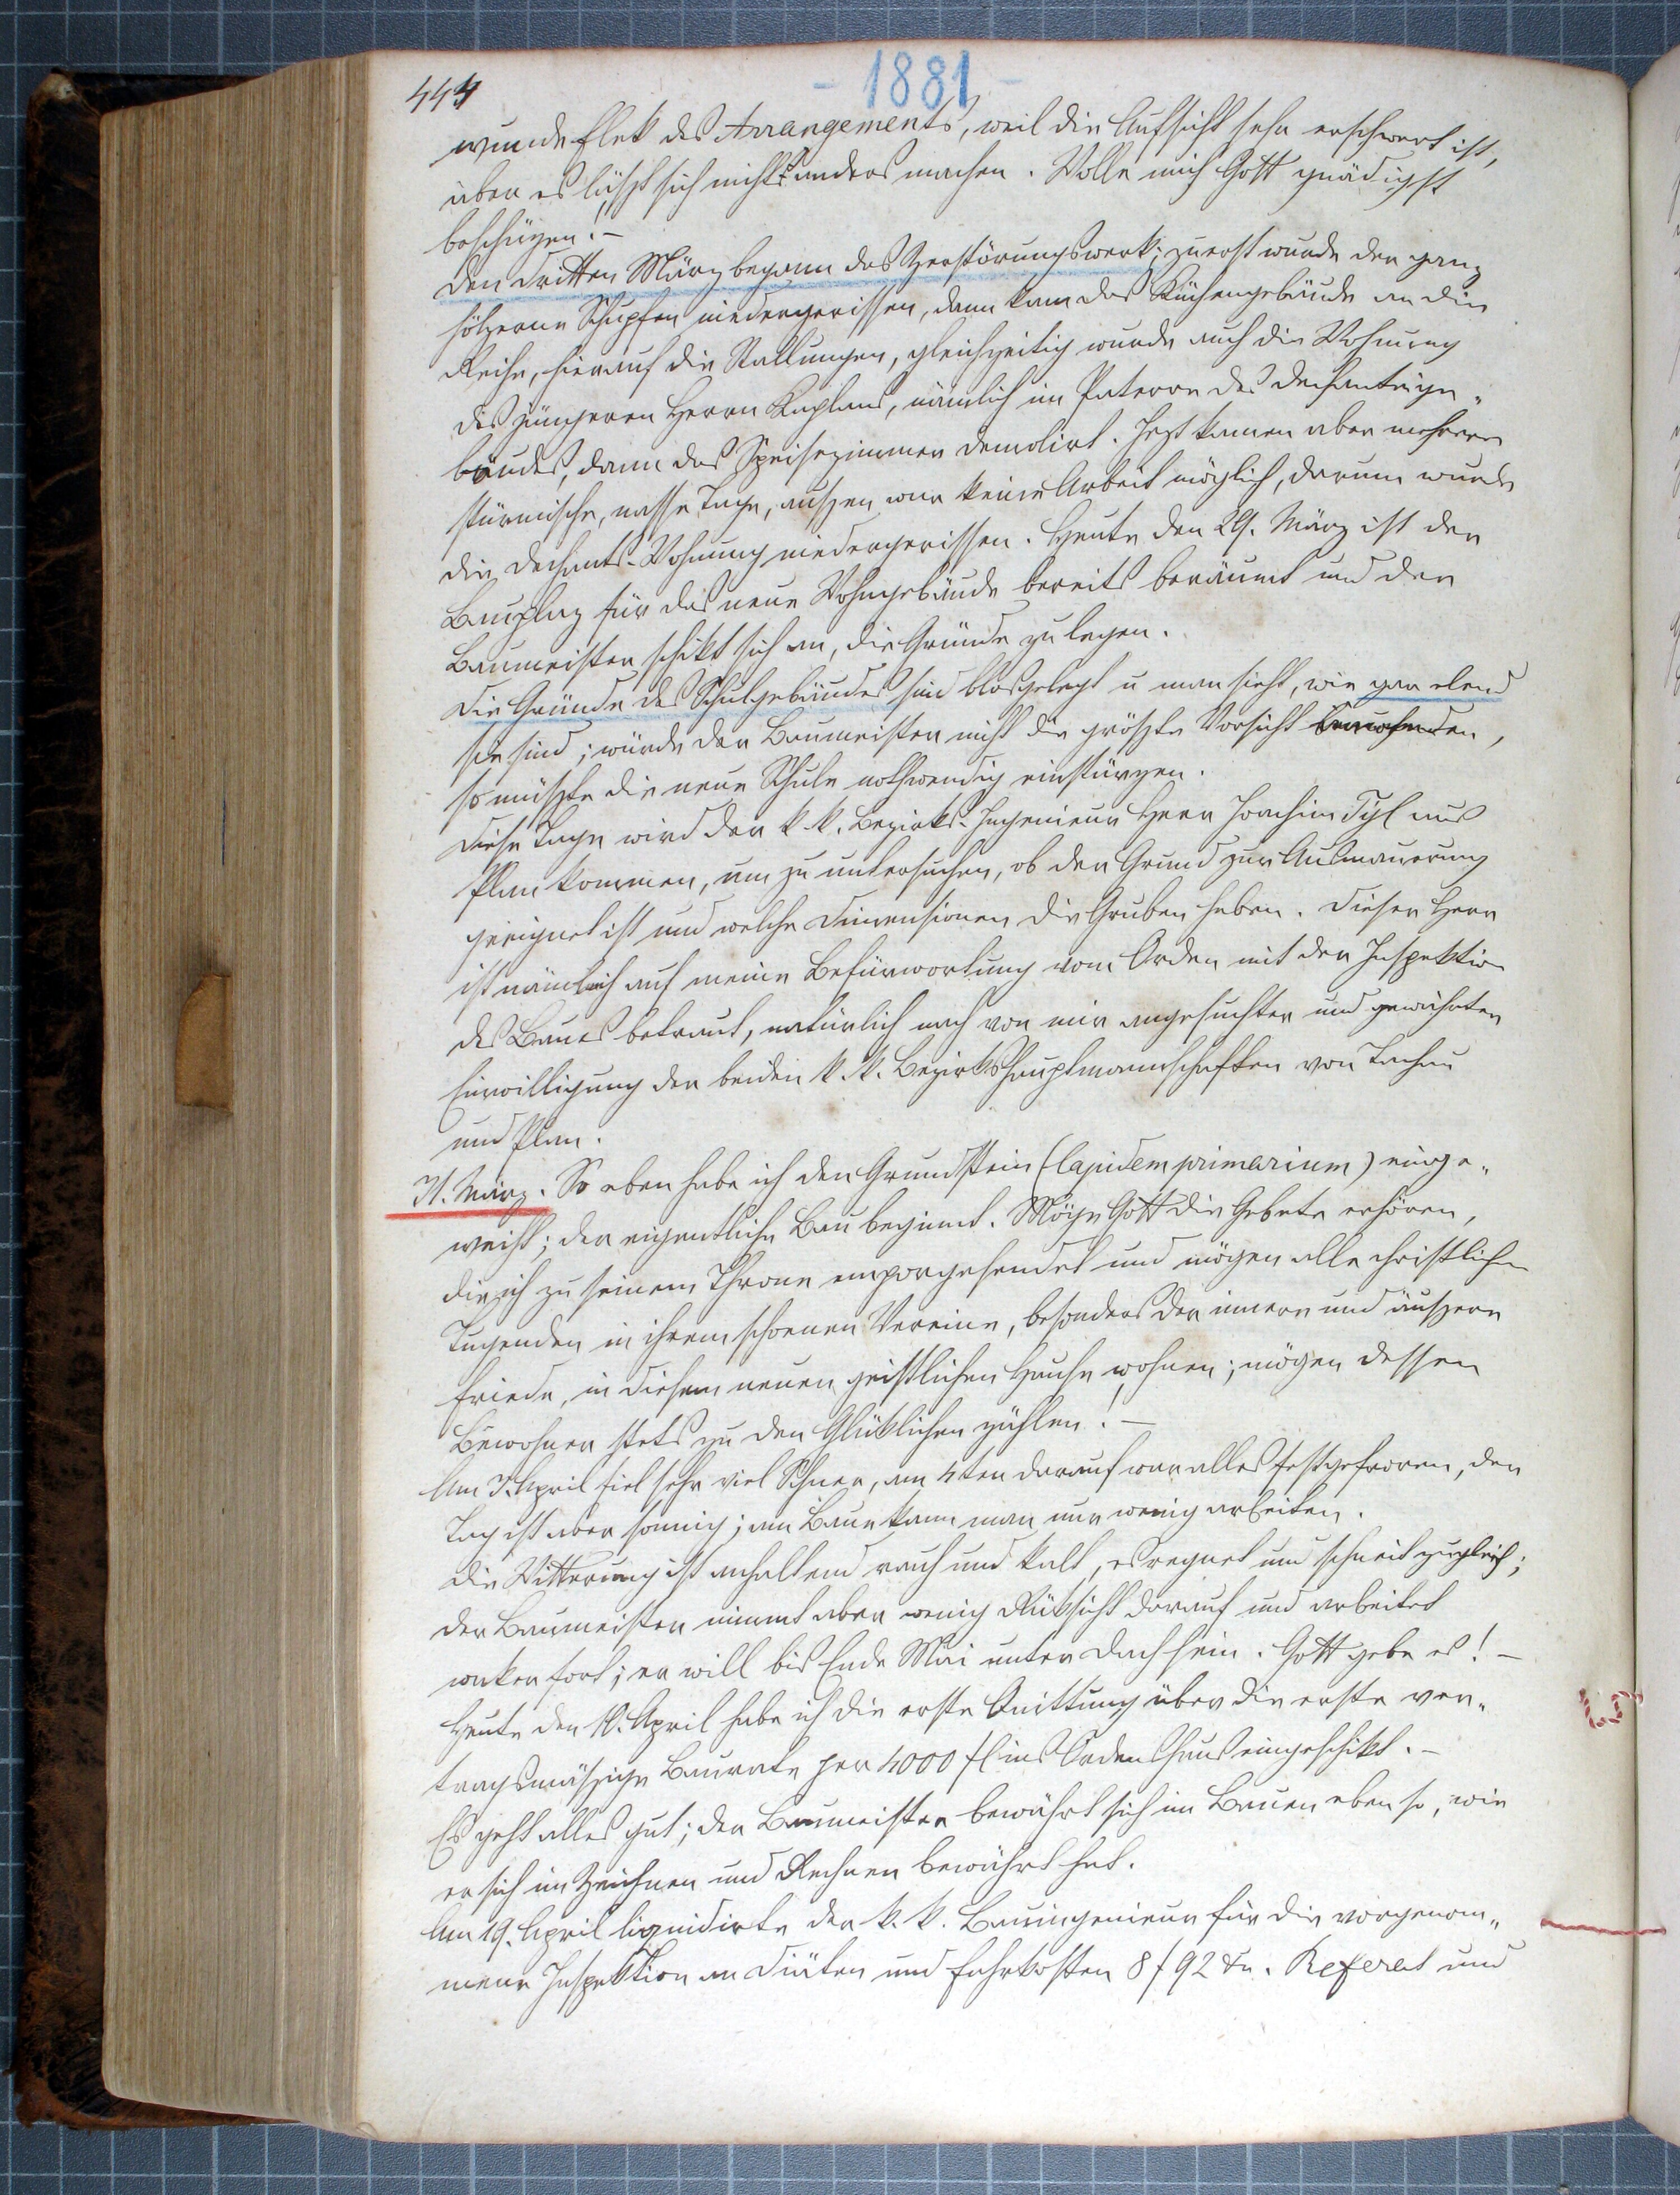 444
- 1881 -
wunde Flek des Arrangements, weil die Aufsicht sehr erschwert ist,
aber es läszt sich nichts anders machen. Wolle mich Gott gnädigst
beschüzen! –
Den dritten März begann das Zerstörungswerk; zuerst wurde der ganz
hölzerne Schupfen niedergerissen, dann kam das Küchengebäude an die
Reihe, hierauf die Stallungen, gleichzeitig wurde auch die Wohnung
des jüngeren Herrn Kaplans, nämlich im Paterre des Dechanteige„
bäudes, dann das Speisezimmer demolirt. Jezt kamen aber mehrere
stürmische, nasse Tage, auszen war keine Arbeit möglich, darum wurde
die Dechants-Wohnung niedergerissen. Heute den 29. März ist der
Bauplaz für das neue Wohngebäude bereits beräumt und der
Baumeister schikt sich an, die Gründe zu legen.
Die Gründe des Schulgebäudes sind blosgelegt u man sieht, wie gar elend
sie sind; würde der Baumeister nicht die gröszte Vorsicht anwenden,
so müszte die neue Schule nothwendig einstürzen.
Diese Tage wird der k. k. Bezirks-Ingenieur Herr Joachim Tyl aus
Plan kommen, um zu untersuchen, ob der Grund zur Ausmauerung
geeignet ist und welche Dimensionen die Gruben haben. Dieser Herr
ist nämlich auf meine Befürwortung vom Orden mit der Inspektion
des Baues betraut, natürlich nach von mir angesuchter und gewährter
Einwilligung der beiden k. k. Bezirkshauptmannschaften von Tachau
und Plan.
31. März. So eben habe ich den Grundstein (lapidem primarium) einge„
weiht; der eigentliche Bau beginnt. Möge Gott die Gebete erhören,
die ich zu seinem Throne emporgesendet und mögen alle christlichen
Tugenden in ihrem schoenen Vereine, besonders der innere und äuszere
Friede, in diesem neuen geistlichen Hause wohnen; mögen dessen
Bewohner stets zu den Glüklichen zählen! –
Am 3. April fiel sehr viel Schnee, am 4ten darauf war alles festgefroren, der
Tag ist aber sonnig; am Baue kann man nur wenig arbeiten.
Die Witterung ist anhaltend rauh und kalt, es regnet und schneit zugleich;
der Baumeister nimmt aber wenig Rüksicht darauf und arbeitet
waker fort; er will bis Ende Mai unter Dach sein. Gott gebe es! –
Heute den 10. April habe ich die erste Quittung über die erste ver„
tragsmäszige Baurate per 4000 fl ins Ordenshaus eingeschikt. –
Es geht alles gut; der Baumeister bewährt sich im Bauen eben so, wie
er sich im Zeichnen und Rechnen bewährt hat.
Am 19. April liquidirte der k. k. Bauingenieur für die vorgenom„
mene Inspektion an Diäten und Fahrkosten 8 f 92 kr. Referat und